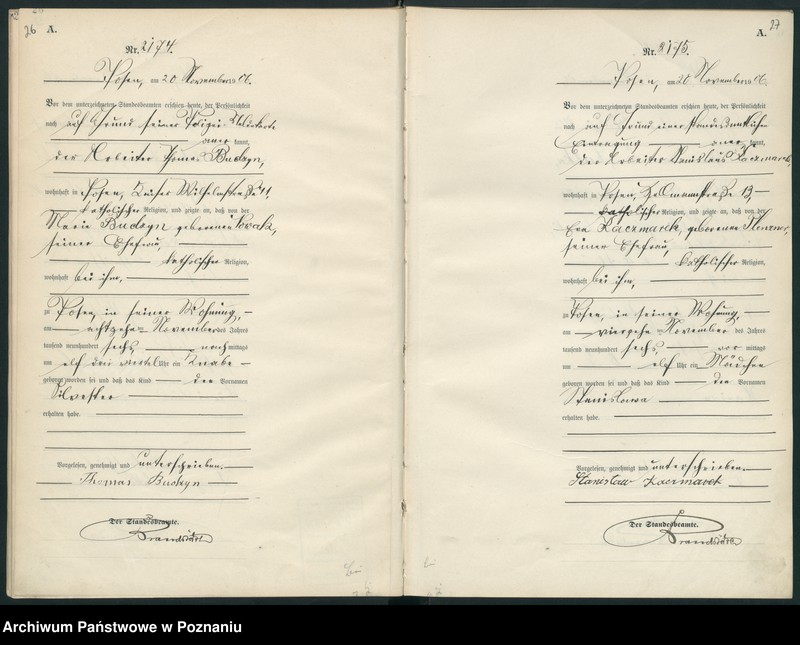 26 A.
Nr. 2174.
Posen, am 20 November 06.
Vor dem unterzeichneten Standesbeamten erschien heute, der Persönlichkeit
nach auf Grund seiner Polizei-Meldekarte
kannt,
der Arbeiter Thomas Budzyn,
wohnhaft in Posen, Kaiser Wilhelmstraße 41,
katholischer Religion, und zeigte an, daß von der
Marie Budzyn geborenen Nowak,
seiner Ehefrau,
katholischer Religion,
wohnhaft bei ihm,
zu Posen, in seiner Wohnung,
am achtzehnten November des Jahres
tausend neunhundert sechs, nachmittags
um elf drei viertel Uhr ein Knabe
geboren worden sei und daß das Kind den Vornamen
Silvester
erhalten habe.
Vorgelesen, genehmigt und unterschrieben.
Thomas Budzyn
Der Standesbeamte.
A. 27
Nr. 2175.
Posen, am 20 November 06.
Vor dem unterzeichneten Standesbeamten erschien heute, der Persönlichkeit
nach auf Grund einer standesamtlichen
Eintragung kannt,
der Arbeiter Stanislaus Kaczmarek,
wohnhaft in Posen, 13,
katholischer Religion, und zeigte an, daß von der
Eva Kaczmarek, geborenen
seiner Ehefrau,
katholischer Religion,
wohnhaft bei ihm,
zu Posen, in seiner Wohnung,
am vierzehnten November des Jahres
tausend neunhundert sechs, vormittags
um elf Uhr ein Mädchen
geboren worden sei und daß das Kind den Vornamen
Stanislawa
erhalten habe.
Vorgelesen, genehmigt und unterschrieben.
Stanisław Kaczmarek
Der Standesbeamte.
Archiwum Państwowe w Poznaniu